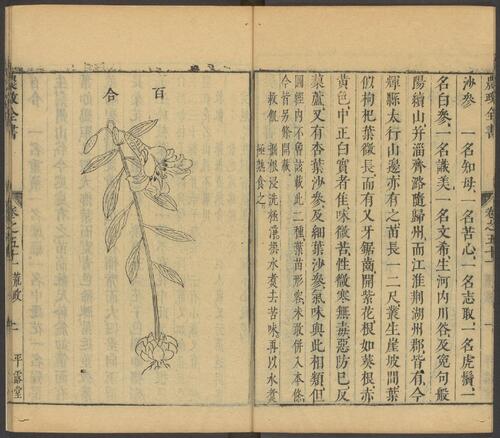 農政全書
卷之五十一
沙參 一名知母、一名苦心、一名志取、一名虎鬚、一
名白參、一名識美、一名文希、生河内川谷及冤句般
陽續山、并淄齊潞隨歸州、而江淮荆湖州郡、皆有、今
輝縣太行山邊亦有之、苗長一二尺、叢生崖坡間、葉
似枸杞葉、微長而有叉牙鋸齒、開紫花、根如葵根、赤
黄色、中正白實者佳、味微苦、性微寒、無毒、惡防己、反
藜蘆、又有杏葉沙參、及細葉沙參、氣味與此相類、但
圖經内不曾該載此二種葉苗形容、未敢併入本條、
今皆另條開載、
救飢 掘根浸洗極淨、換水煮去苦味、再以水煮
極熟食之、
百合
農政全書
卷之五十一
荒政
平露堂